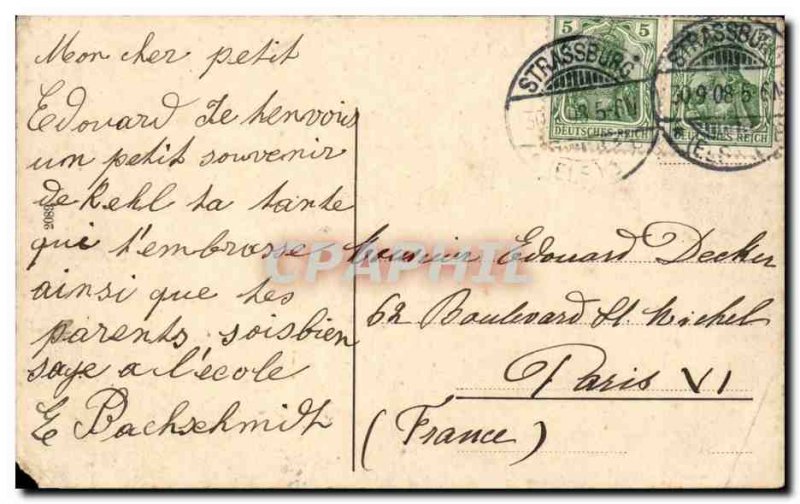 Mon cher petit
Edouard Je t'envois
un petit souvenir
de Kehl ta tante
qui t'embrasse
ainsi que tes
parents sois bien
saje a l'école
E Bachschmidt
Monsieur Edouard Decker
62 Boulevard St Michel
Paris VI
(France)
5 5
DEUTSCHES REICH
DEUTSCHES REICH
STRASSBURG
STRASSBURG
30.9.08.5-6N
(ELS)
CPAPHIL